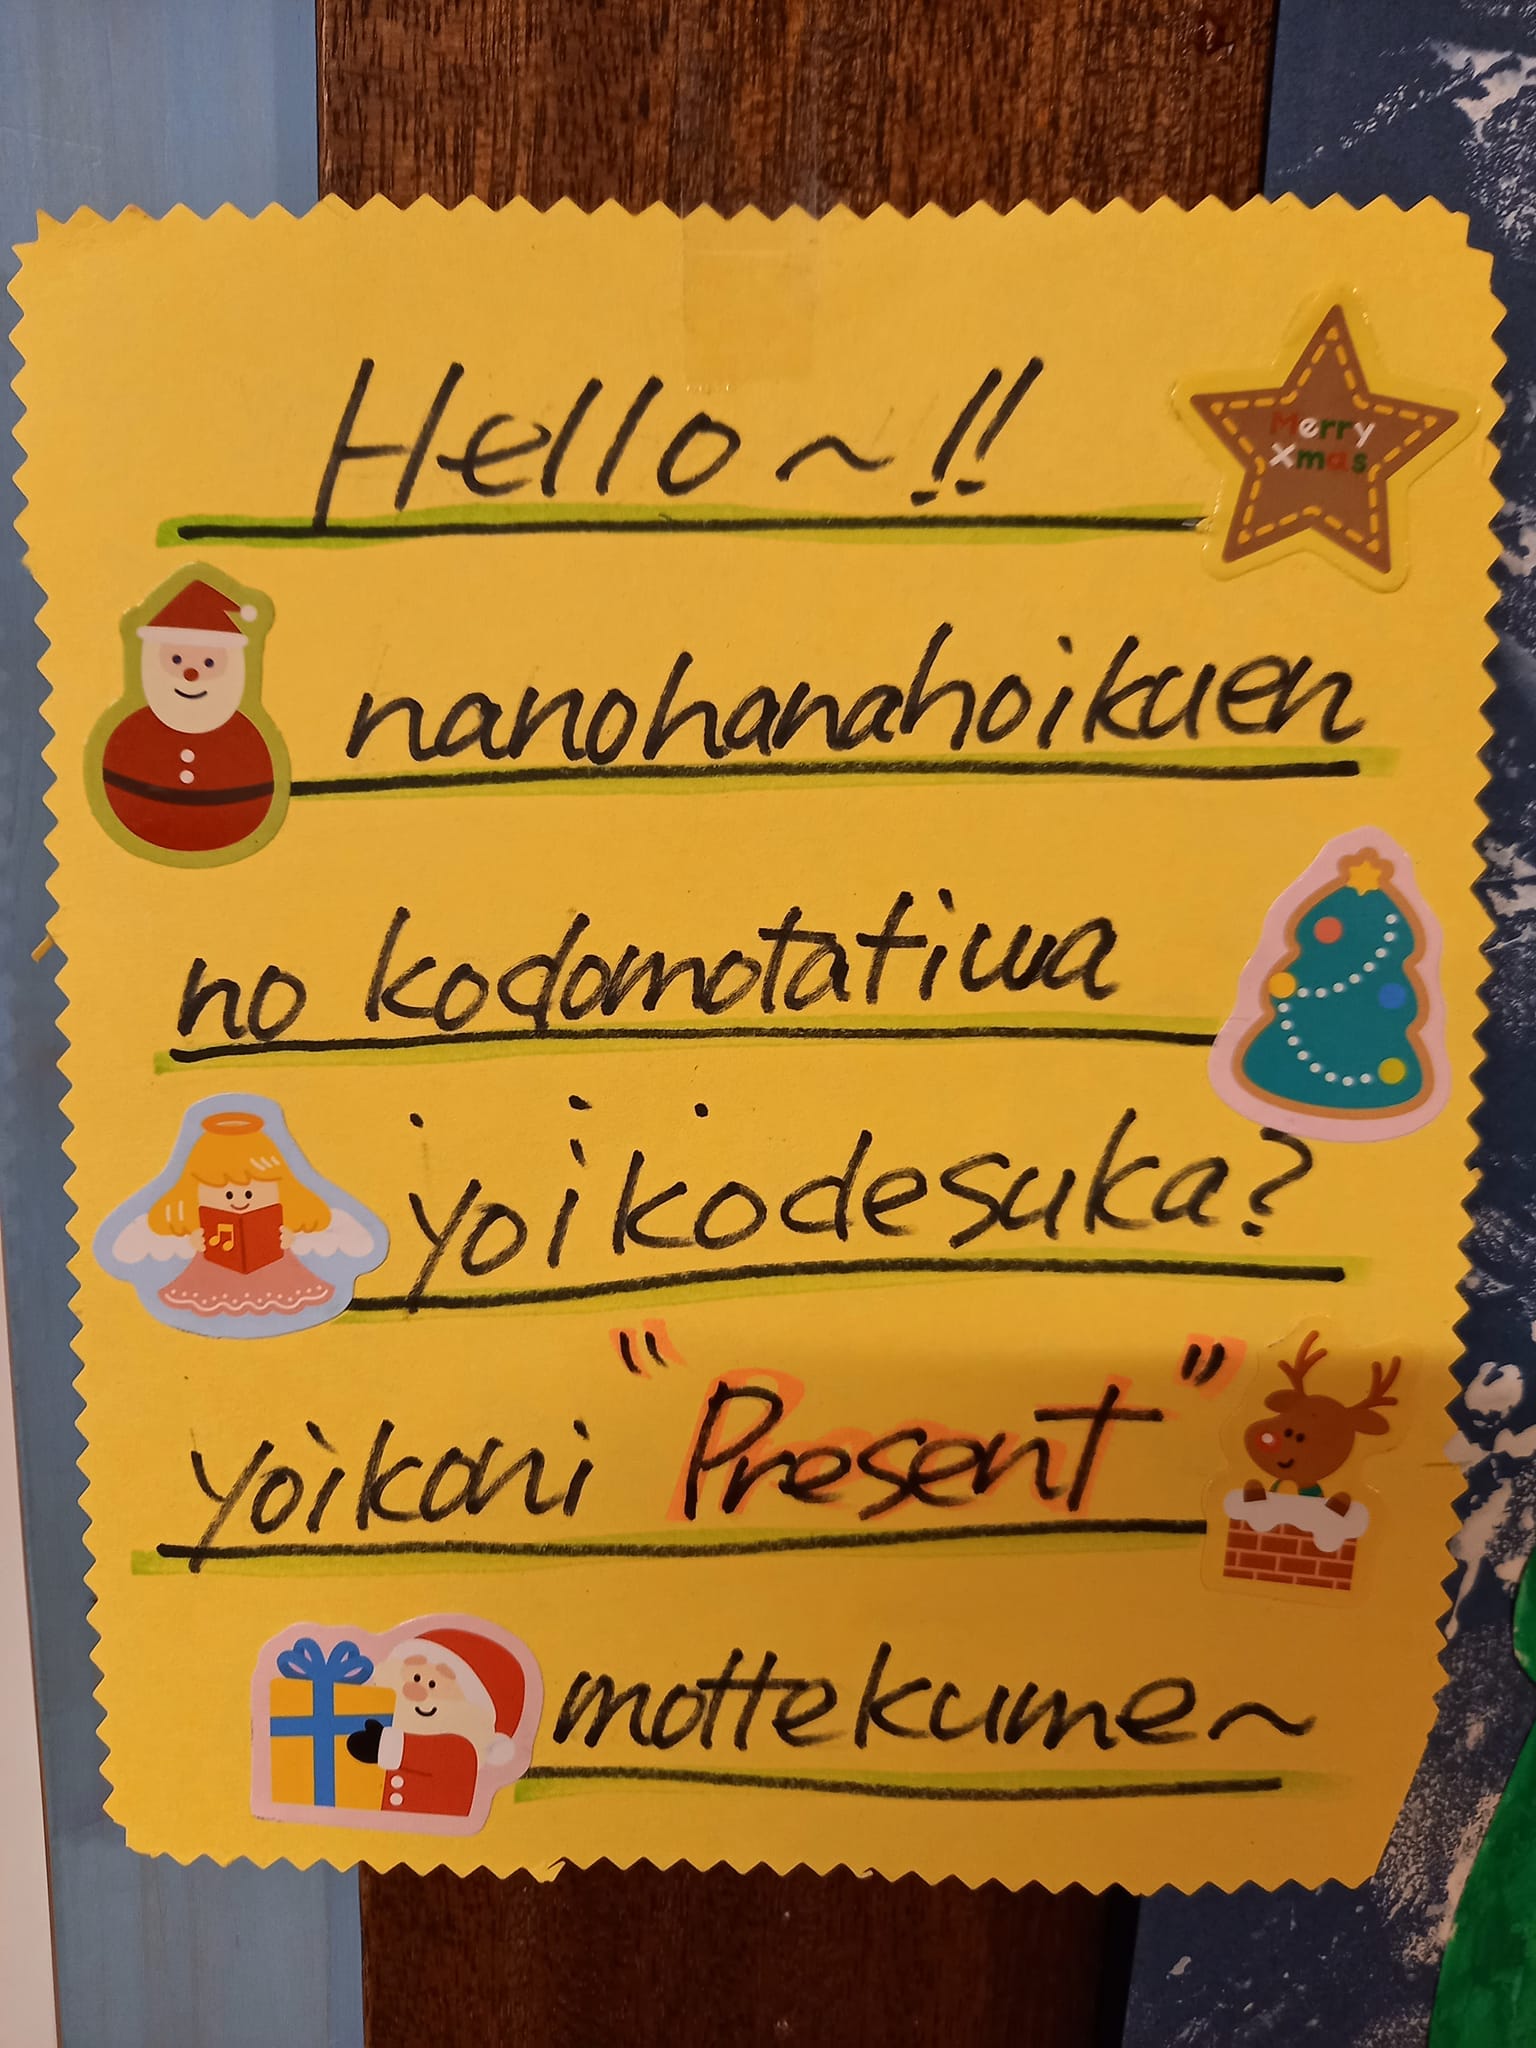 Hello~!!
Merry
Xmas
nanohanahoikuen
no kodomotatiwa
yoikodesuka?
yoikoni "Present"
mottekume~